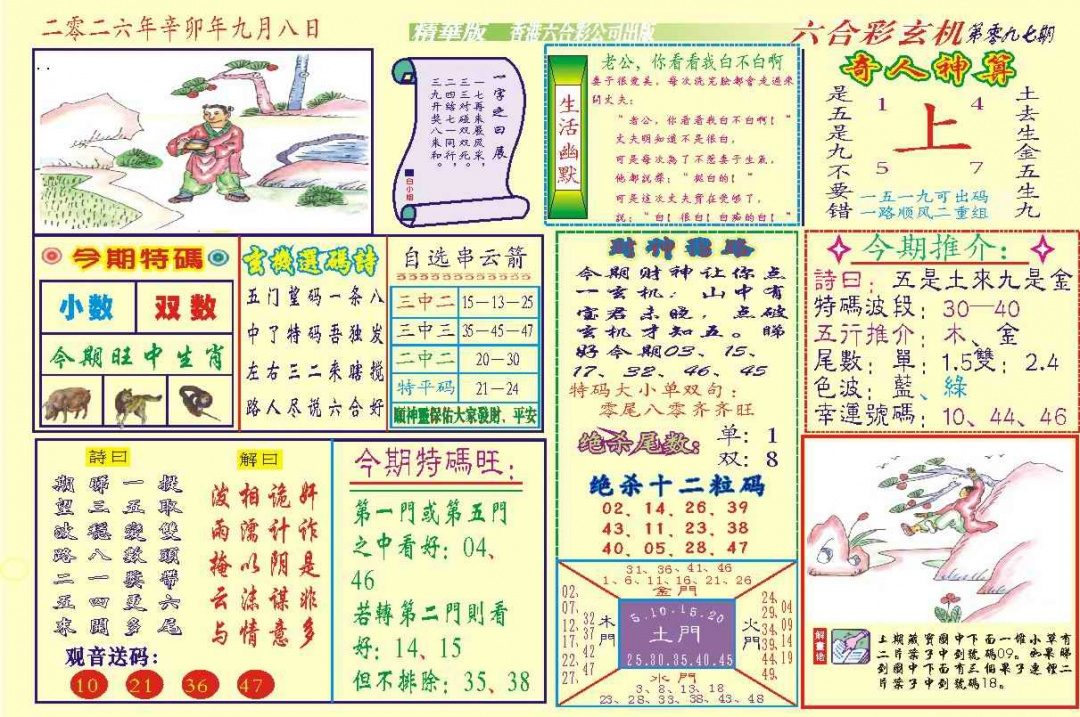 二零二六年辛卯年九月八日
精華版 香港六合彩公司出版
六合彩玄机第零九七期
一字之曰 展
一七再碰来展风采,
二三三对一双双飞,
三四开结八同行。
三九奖七一来和。
白小姐
生活幽默
老公,你看看我白不白啊
妻子很爱美,每次洗完脸都會走過來
問丈夫:
“老公,你看看我白不白啊!”
丈夫明知道不是很白,
可是每次為了不惹妻子生氣,
他都說聲:“挺白的!”
可是這次丈夫實在受够了,
說:“白!很白!白痴的白!”
奇人神算
是五是九不要错
1 4
上
5 7
土去生金五生九
一五一九可出码
一路顺风二重组
今期特碼
小数 双数
今期旺中生肖
玄機選碼詩
五门望码一条八
中了特码吾独发
左右三二来瞎搅
路人尽说六合好
自选串云箭
三中二 15—13—25
三中三 35—45—47
二中二 20—30
特平码 21—24
願神靈保佑大家發財、平安
今期财神让你点
一玄机:山中有
宝君未晚,点破
玄机才知五。睇
好今期03、15、
17、32、46、45
特码大小单双句:
零尾八零齐齐旺
绝杀尾数: 单:1
双:8
绝杀十二粒码
02、14、26、39
43、11、23、38
40、05、28、47
今期推介:
詩曰: 五是土來九是金
特碼波段: 30—40
五行推介: 木、金
尾數: 單: 1.5雙: 2.4
色波: 藍、綠
幸運號碼: 10、44、46
詩曰
期睇一提
望三五取
波穩變雙
路八數頭
二一獎帶
五四更六
來開多尾
解曰
波相诡奸
雨濡计诈
掩以阴是
云沫谋非
与情意多
观音送码:
10 21 36 47
今期特碼旺:
第一門或第五門
之中看好: 04、
46
若轉第二門則看
好: 14、15
但不排除: 35、38
31、36、41、46
1、6、11、16、21、26
金門
02、07、12、17、22、27、
32、37、42、47
木門
5.10.15.20
土門
25.30.35.40.45
火門
24、29、34、39、44、49、
04、09、14、19
水门
3、8、13、18
23、28、33、38、43、48
解畫佬
上期藏寶圖中下面一堆小草有
二片葉子中到號碼09。如果睇
到圖中下面有三個果子連裡二
片葉子中到號碼18。